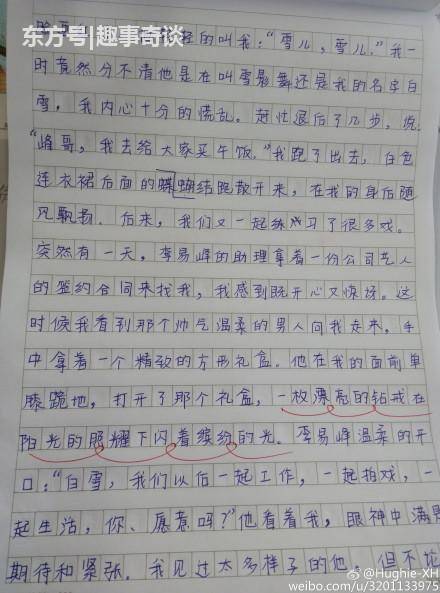 东方号|趣事奇谈
轻的叫我:“雪儿,雪儿。”我一
时竟然分不清他是在叫雪影舞还是我的名字白
雪,我内心十分的慌乱。赶忙退后了几步,说
“峰哥,我去给大家买午饭。”我跑了出去,白色
连衣裙后面的蝴蝶结跑散开来,在我的身后随
风飘扬.后来,我们又一起练习了很多戏。
突然有一天,李易峰的助理拿着一份公司艺人
的签约合同来找我,我感到既开心又惊讶。这
时候我看到那个帅气温柔的男人向我走来,手
中拿着一个精致的方形礼盒。他在我的面前单
膝跪地,打开了那个礼盒,一枚漂亮的钻戒在
阳光的照耀下闪着缤纷的光。李易峰温柔的开
口:“白雪,我们以后一起工作,一起拍戏,一
起生活,你、愿意吗?”他看着我,眼神中满是
期待和紧张。我见过太多样子的他,但不论
@Hughie-XH
weibo.com/u/3201133975